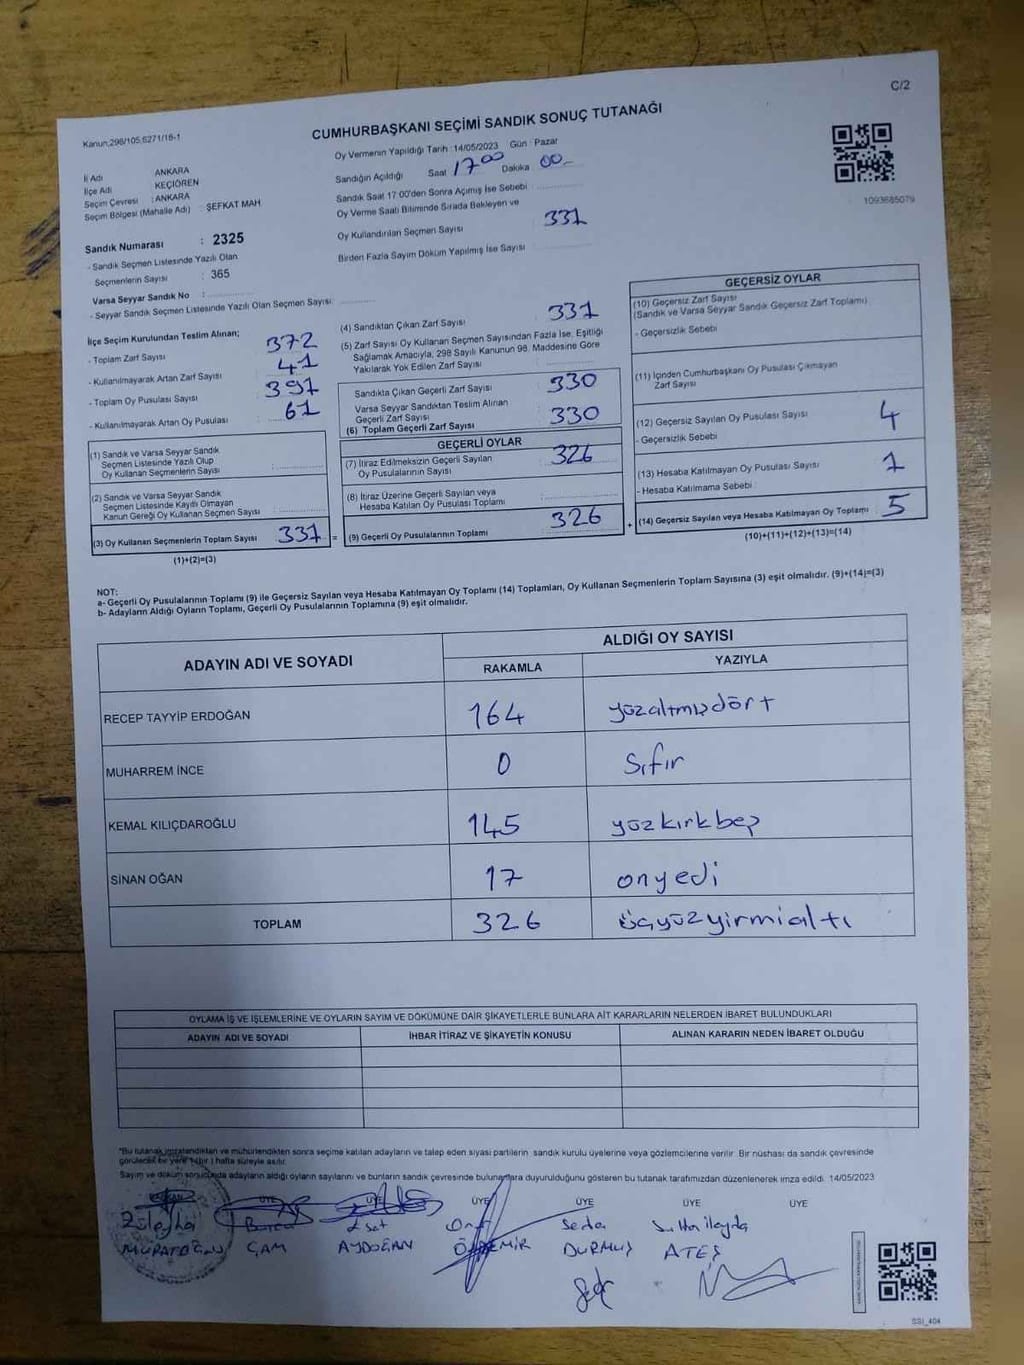 C/2
Kanun,298/105,6271/18-1
CUMHURBAŞKANI SEÇİMİ SANDIK SONUÇ TUTANAĞI
Oy Vermenin Yapıldığı Tarih : 14/05/2023 Gün : Pazar
İl Adı ANKARA
İlçe Adı KEÇİÖREN
Seçim Çevresi : ANKARA
Seçim Bölgesi (Mahalle Adı) : ŞEFKAT MAH
Sandığın Açıldığı Saat 17 00 Dakika 00
Sandık Saat 17:00'den Sonra Açımış İse Sebebi :
Oy Verme Saati Bitiminde Sırada Bekleyen ve
Oy Kullandırılan Seçmen Sayısı 331
Birden Fazla Sayım Döküm Yapılmış İse Sayısı
1093685079
Sandık Numarası : 2325
- Sandık Seçmen Listesinde Yazılı Olan
Seçmenlerin Sayısı : 365
Varsa Seyyar Sandık No :
- Seyyar Sandık Seçmen Listesinde Yazılı Olan Seçmen Sayısı:
İlçe Seçim Kurulundan Teslim Alınan;
- Toplam Zarf Sayısı 372
- Kullanılmayarak Artan Zarf Sayısı 41
- Toplam Oy Pusulası Sayısı 391
- Kullanılmayarak Artan Oy Pusulası 61
(1) Sandık ve Varsa Seyyar Sandık
Seçmen Listesinde Yazılı Olup
Oy Kullanan Seçmenlerin Sayısı
(2) Sandık ve Varsa Seyyar Sandık
Seçmen Listesinde Kayıtlı Olmayan
Kanun Gereği Oy Kullanan Seçmen Sayısı
(3) Oy Kullanan Seçmenlerin Toplam Sayısı 331 =
(1)+(2)=(3)
(4) Sandıktan Çıkan Zarf Sayısı 331
(5) Zarf Sayısı Oy Kullanan Seçmen Sayısından Fazla İse; Eşitliği
Sağlamak Amacıyla, 298 Sayılı Kanunun 98. Maddesine Göre
Yakılarak Yok Edilen Zarf Sayısı
Sandıkta Çıkan Geçerli Zarf Sayısı 330
Varsa Seyyar Sandıktan Teslim Alınan
Geçerli Zarf Sayısı
(6) Toplam Geçerli Zarf Sayısı 330
GEÇERLİ OYLAR
(7) İtiraz Edilmeksizin Geçerli Sayılan
Oy Pusulalarının Sayısı 326
(8) İtiraz Üzerine Geçerli Sayılan veya
Hesaba Katılan Oy Pusulası Toplamı
(9) Geçerli Oy Pusulalarının Toplamı 326 +
GEÇERSİZ OYLAR
(10) Geçersiz Zarf Sayısı
(Sandık ve Varsa Seyyar Sandık Geçersiz Zarf Toplamı)
- Geçersizlik Sebebi
(11) İçinden Cumhurbaşkanı Oy Pusulası Çıkmayan
Zarf Sayısı
(12) Geçersiz Sayılan Oy Pusulası Sayısı 4
- Geçersizlik Sebebi
(13) Hesaba Katılmayan Oy Pusulası Sayısı 1
- Hesaba Katılmama Sebebi
(14) Geçersiz Sayılan veya Hesaba Katılmayan Oy Toplamı 5
(10)+(11)+(12)+(13)=(14)
NOT:
a- Geçerli Oy Pusulalarının Toplamı (9) ile Geçersiz Sayılan veya Hesaba Katılmayan Oy Toplamı (14) Toplamları, Oy Kullanan Seçmenlerin Toplam Sayısına (3) eşit olmalıdır. (9)+(14)=(3)
b- Adayların Aldığı Oyların Toplamı, Geçerli Oy Pusulalarının Toplamına (9) eşit olmalıdır.
ADAYIN ADI VE SOYADI ALDIĞI OY SAYISI
RAKAMLA YAZIYLA
RECEP TAYYİP ERDOĞAN 164 yüzaltmışdört
MUHARREM İNCE 0 Sıfır
KEMAL KILIÇDAROĞLU 145 yüzkırkbeş
SİNAN OĞAN 17 onyedi
TOPLAM 326 üçyüzyirmialtı
OYLAMA İŞ VE İŞLEMLERİNE VE OYLARIN SAYIM VE DÖKÜMÜNE DAİR ŞİKAYETLERLE BUNLARA AİT KARARLARIN NELERDEN İBARET BULUNDUKLARI
ADAYIN ADI VE SOYADI İHBAR İTİRAZ VE ŞİKAYETİN KONUSU ALINAN KARARIN NEDEN İBARET OLDUĞU
*Bu tutanak imzalandıktan ve mühürlendikten sonra seçime katılan adayların ve talep eden siyasi partilerin sandık kurulu üyelerine veya gözlemcilerine verilir. Bir nüshası da sandık çevresinde
görülecek bir yere 1(bir) hafta süreyle asılır.
Sayım ve döküm sonucunda adayların aldığı oyların sayılarını ve bunların sandık çevresinde bulunanlara duyurulduğunu gösteren bu tutanak tarafımızdan düzenlenerek imza edildi. 14/05/2023
BAŞKAN ÜYE ÜYE ÜYE ÜYE ÜYE ÜYE
Züleyha Seda
MURATOĞLU ÇAM AYDOĞAN ÖZDEMİR DURMUŞ ATEŞ
SSI_404